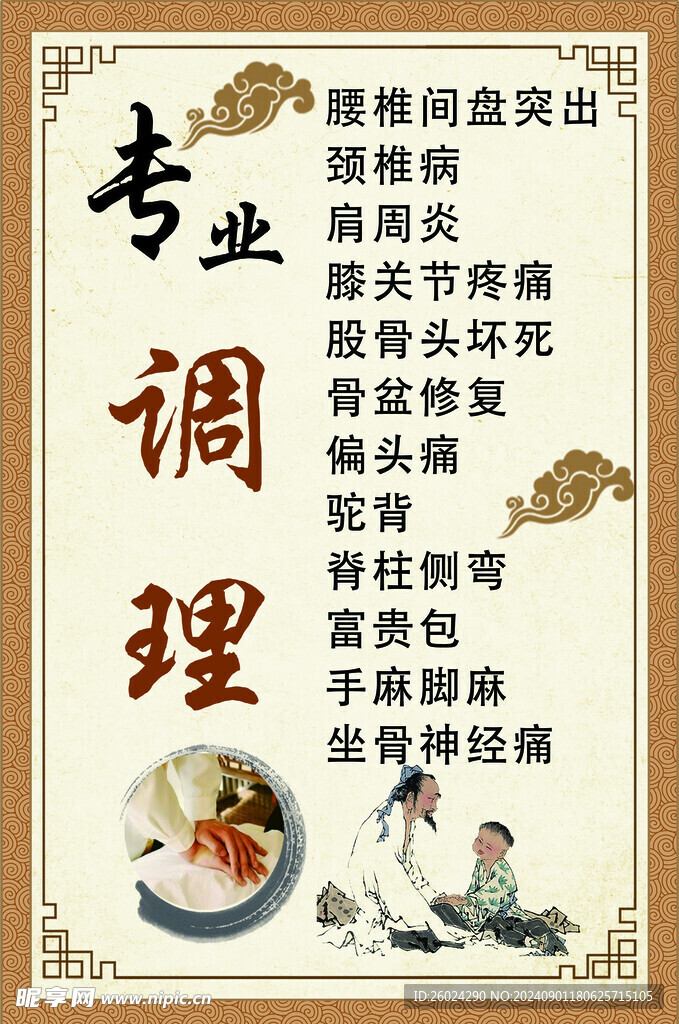 专业
调
理
腰椎间盘突出
颈椎病
肩周炎
膝关节疼痛
股骨头坏死
骨盆修复
偏头痛
驼背
脊柱侧弯
富贵包
手麻脚麻
坐骨神经痛
昵享网 www.nipic.cn
ID:26024290 NO:20240901180625715105